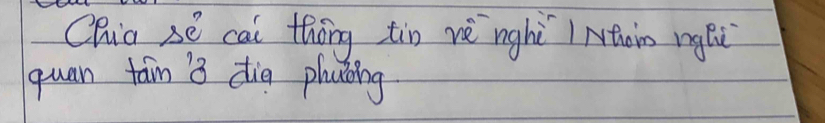 Chia sẻ cái thông tin về nghề / Nhóm nghề
quan tâm ở địa phương.